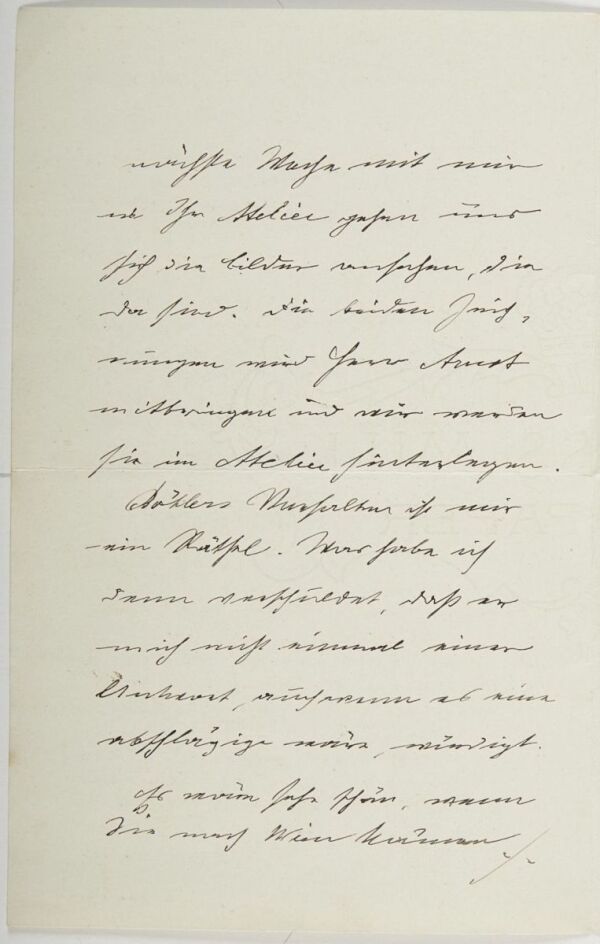 nächste Woche mit mir
in Ihr Atelier gehen und
sich die Bilder ansehen, die
da sind. Die beiden Zeich-
nungen wird Herr Arnot
mitbringen und wir werden
sie im Atelier hinterlegen.
Böhlers Verhalten ist mir
ein Rätsel. Was habe ich
denn verschuldet, daß er
mich nicht einmal einer
Antwort, auch wenn es eine
abschlägige wäre, würdigt.
Es wäre sehr schön, wenn
Sie nach Wien kämen